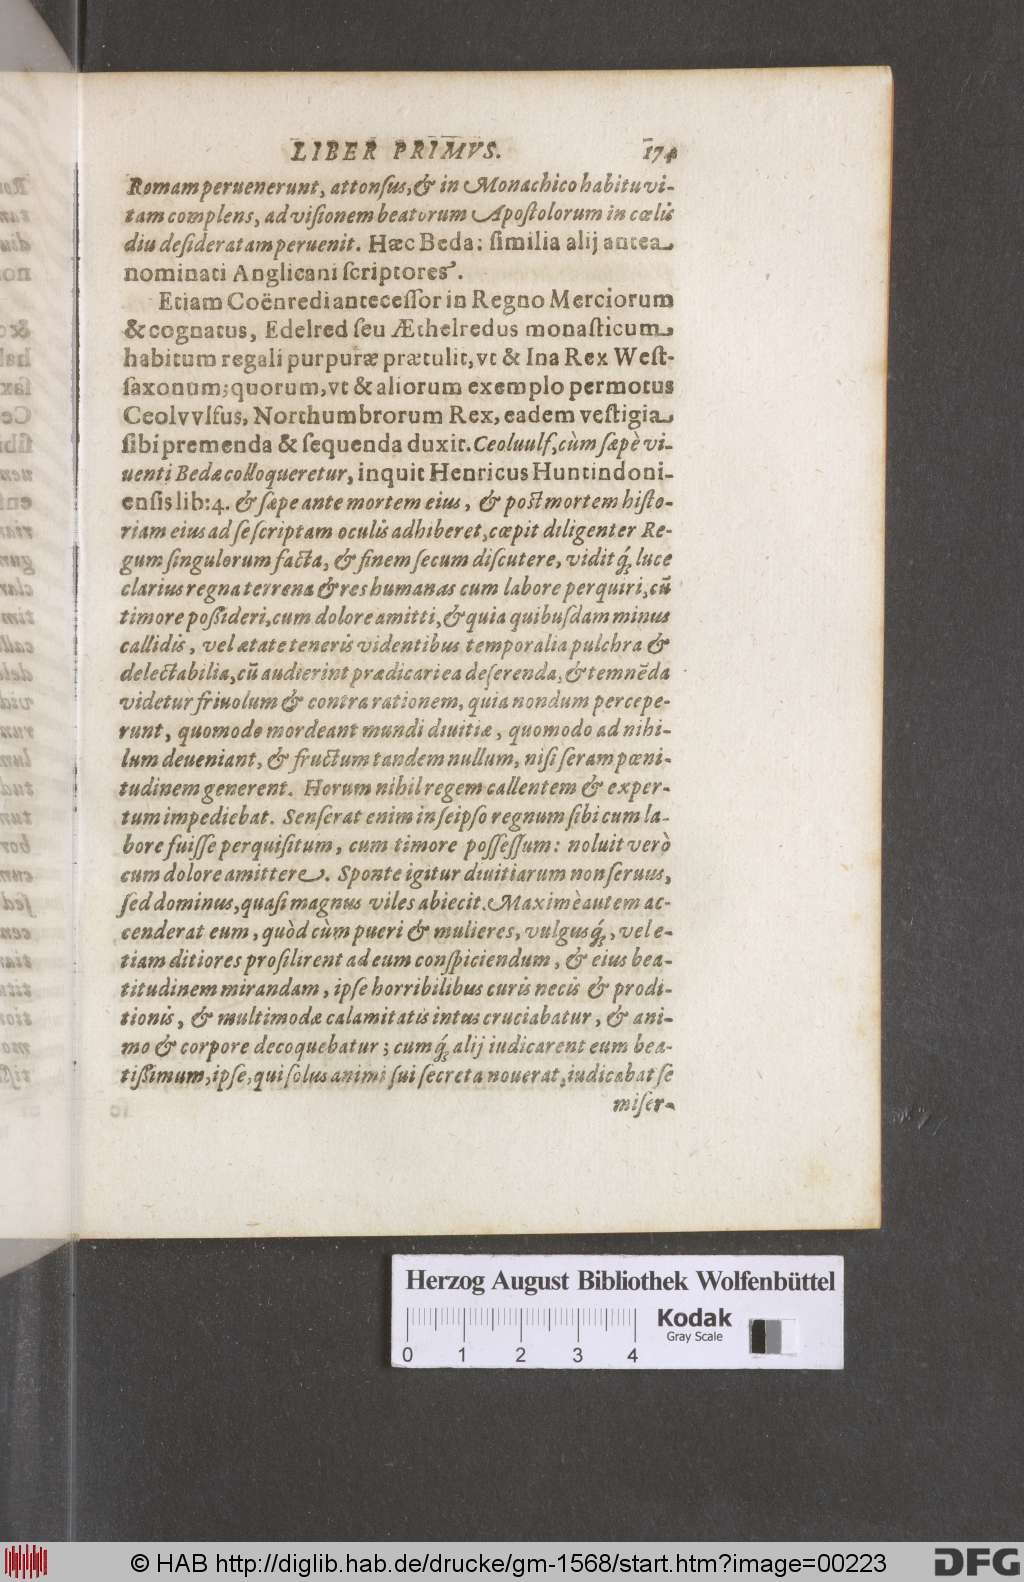 LIBER PRIMVS. 174
Romam peruenerunt, attonsus, & in Monachico habitu vi-
tam complens, ad visionem beatorum Apostolorum in cœlis
diu desideratam peruenit. Hæc Beda: similia alij antea
nominati Anglicani scriptores.
Etiam Coënredi antecessor in Regno Merciorum
& cognatus, Edelred seu Æthelredus monasticum
habitum regali purpuræ prætulit, vt & Ina Rex West-
saxonum; quorum, vt & aliorum exemplo permotus
Ceolvvlfus, Northumbrorum Rex, eadem vestigia
sibi premenda & sequenda duxit. Ceoluulf, cùm sæpè vi-
uenti Bedæ colloqueretur, inquit Henricus Huntindoni-
ensis lib: 4. & sæpe ante mortem eius, & post mortem histo-
riam eius ad se scriptam oculis adhiberet, cœpit diligenter Re-
gum singulorum facta, & finem secum discutere, vidit q́; luce
clarius regna terrena & res humanas cum labore perquiri, cũ
timore possideri, cum dolore amitti, & quia quibusdam minus
callidis, vel ætate teneris videntibus temporalia pulchra &
delectabilia, cũ audierint prædicari ea deserenda, & temnēda
videtur friuolum & contra rationem, quia nondum percepe-
runt, quomodo mordeant mundi diuitiæ, quomodo ad nihi-
lum deueniant, & fructum tandem nullum, nisi seram pœni-
tudinem generent. Horum nihil regem callentem & exper-
tum impediebat. Senserat enim in seipso regnum sibi cum la-
bore fuisse perquisitum, cum timore possessum: noluit verò
cum dolore amittere. Sponte igitur diuitiarum non seruus,
sed dominus, quasi magnus viles abiecit. Maximè autem ac-
cenderat eum, quòd cùm pueri & mulieres, vulgusq́;, vel e-
tiam ditiores prosilirent ad eum conspiciendum, & eius bea-
titudinem mirandam, ipse horribilibus curis necis & prodi-
tionis, & multimodæ calamitatis intus cruciabatur, & ani-
mo & corpore decoquebatur; cum q́; alij iudicarent eum bea-
tissimum, ipse, qui solus animi sui secreta nouerat, iudicabat se
miser-
Herzog August Bibliothek Wolfenbüttel
Kodak
Gray Scale
0 1 2 3 4
© HAB http://diglib.hab.de/drucke/gm-1568/start.htm?image=00223
DFG